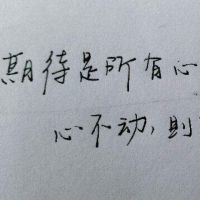 期待是所有心
心不动,则